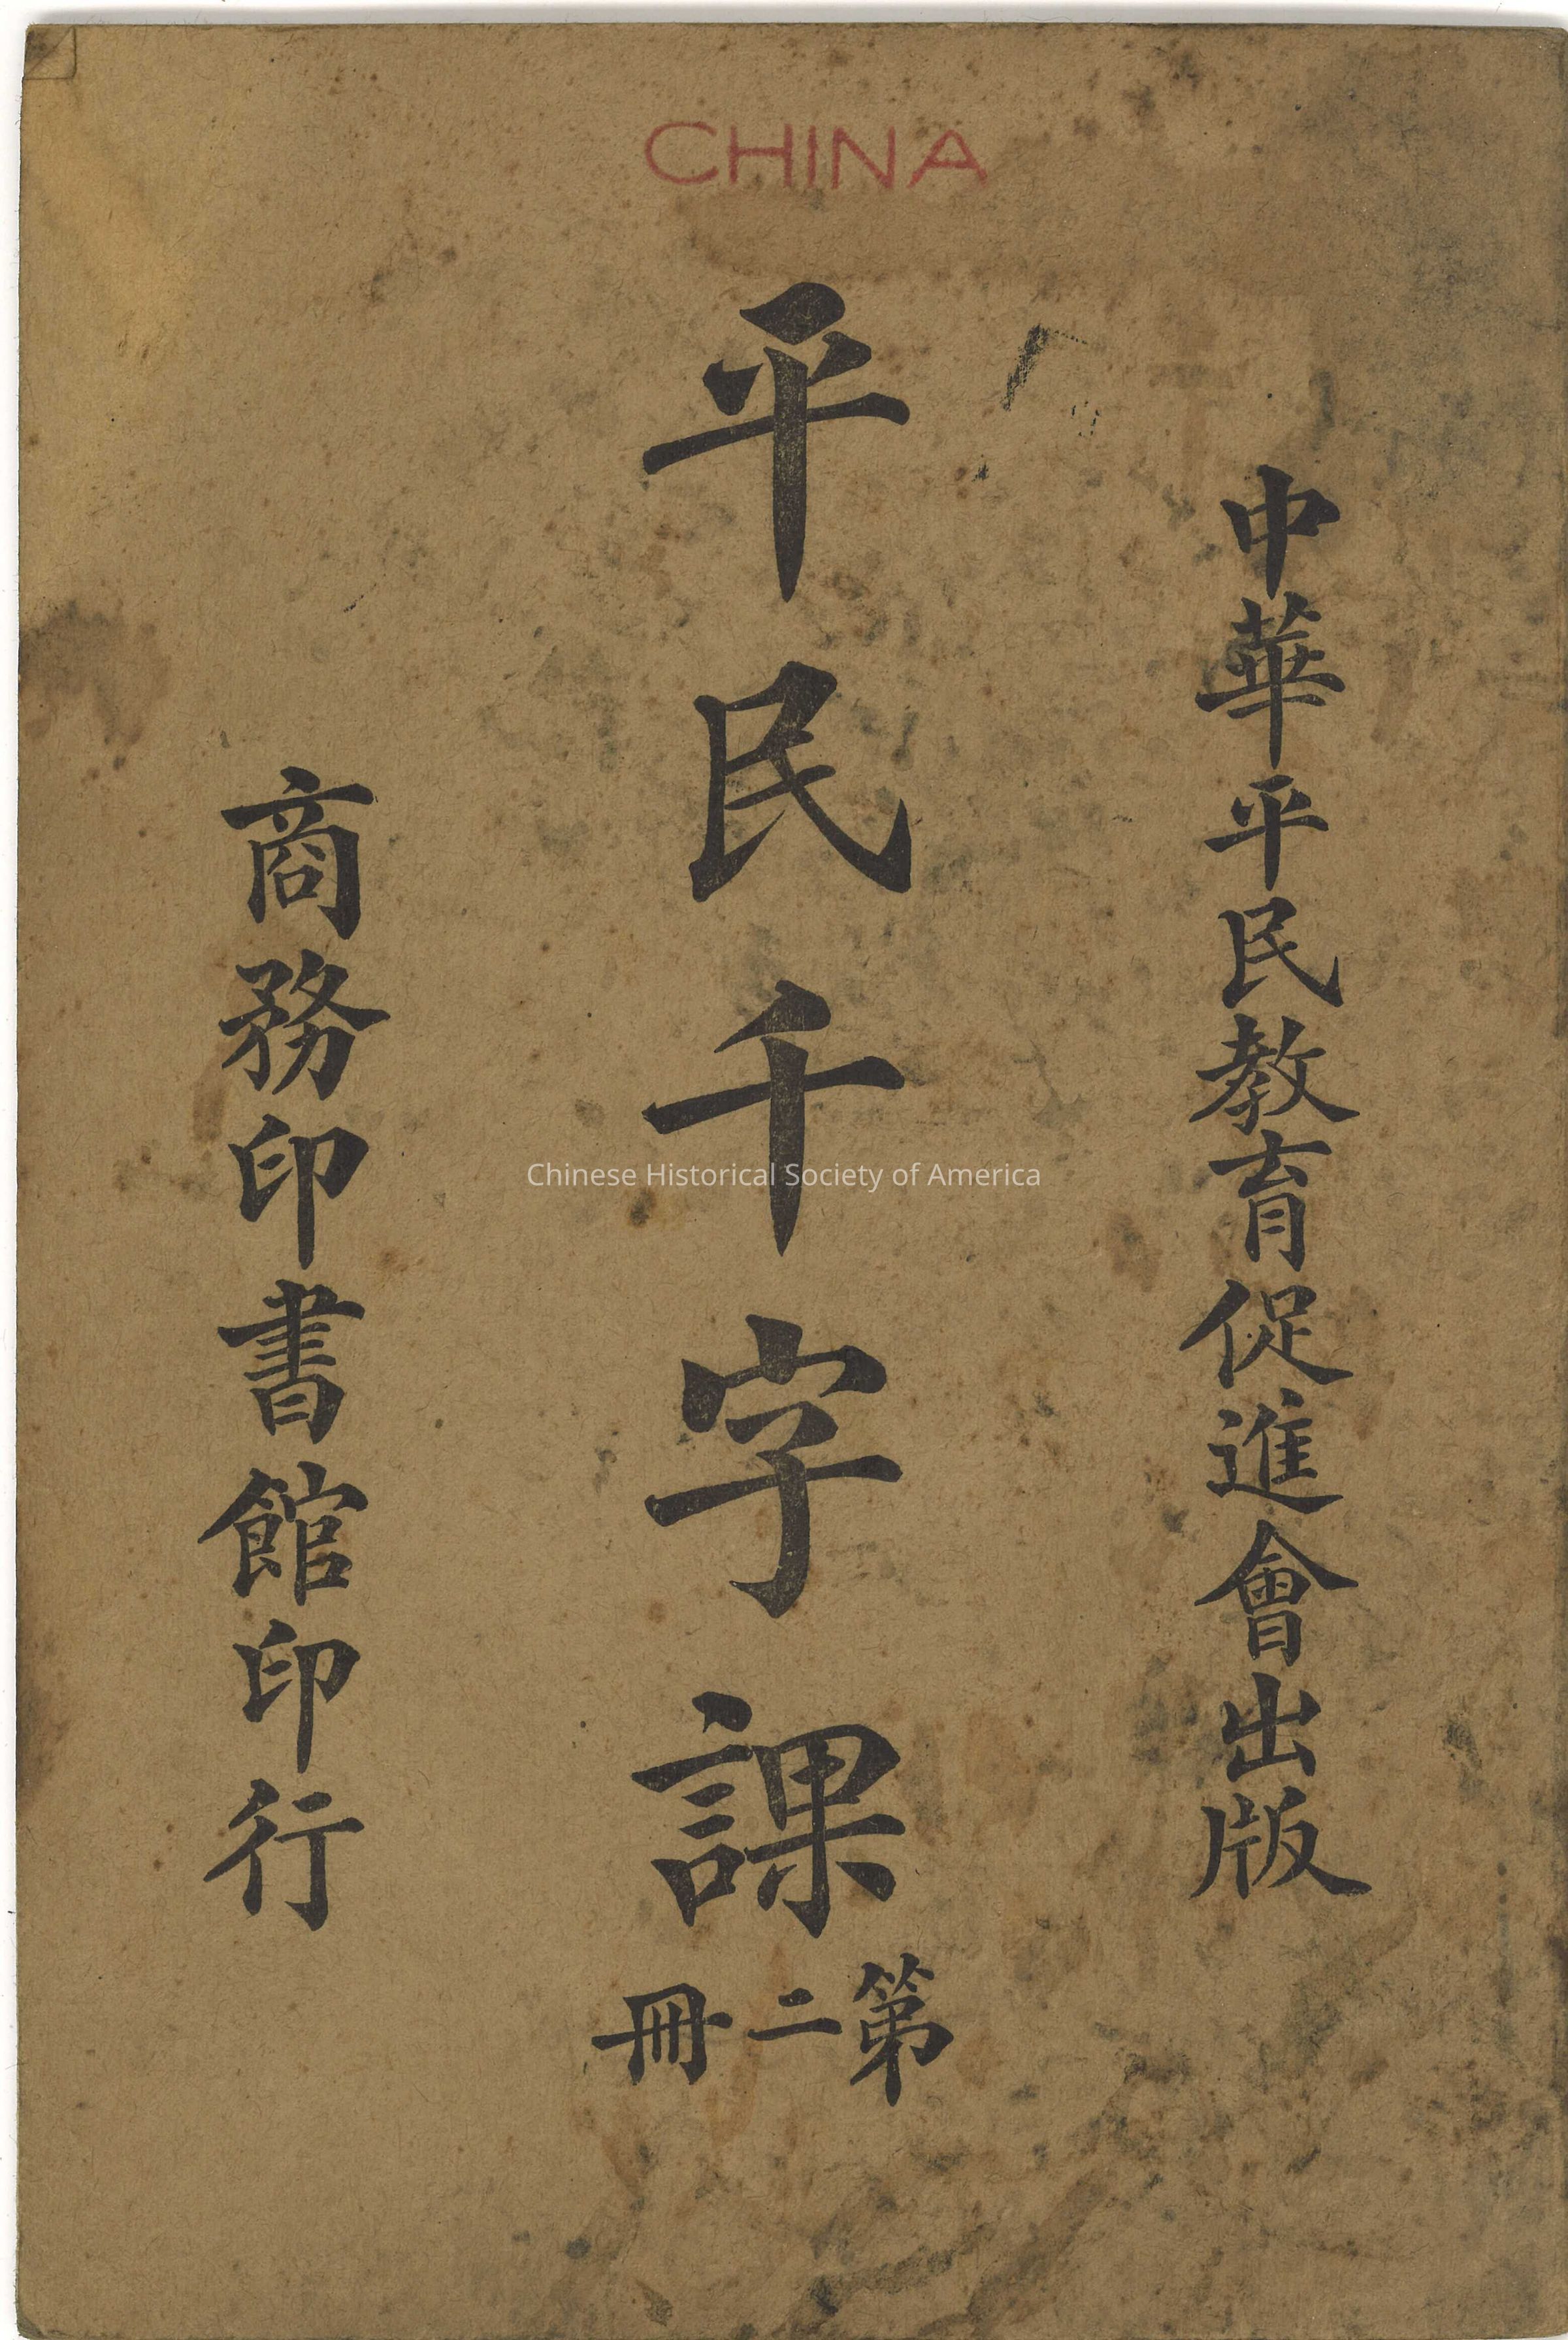 CHINA
中華平民教育促進會出版
平民千字課
第二冊
商務印書館印行
Chinese Historical Society of America